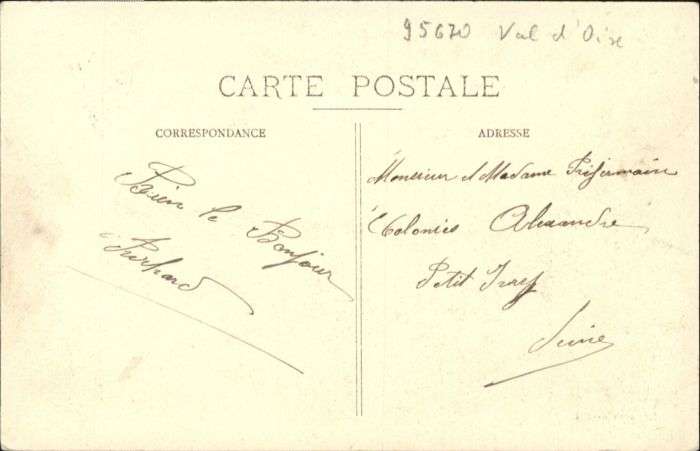 95670 Val d'Oise
CARTE POSTALE
CORRESPONDANCE
Bien le Bonjour
ADRESSE
Monsieur et Madame
Colonies Alexandre
Petit Ivry
Seine